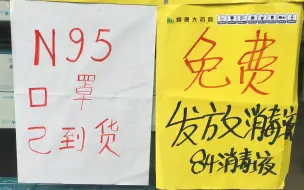 N95
口罩
己到货
大药房
免费
发放消毒液
84消毒液